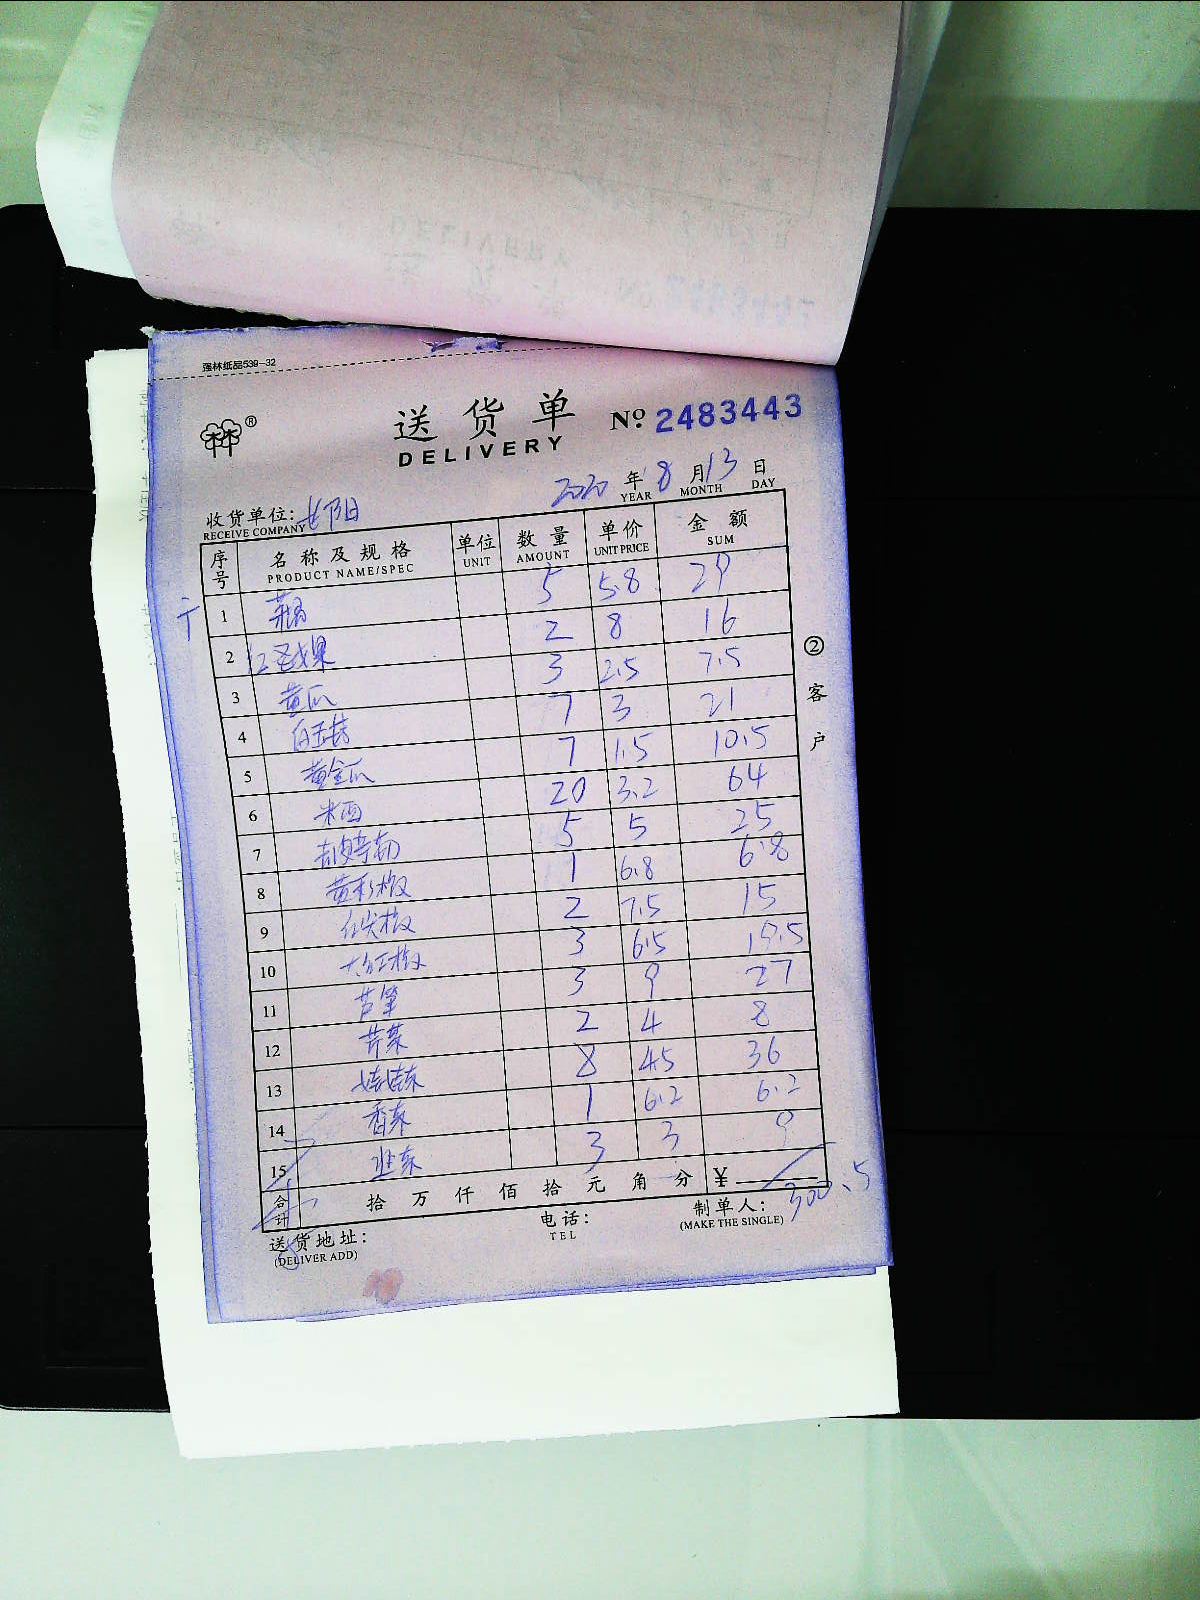 强林纸品539-32
林林®
送货单 Nº 2483443
DELIVERY
2020年8月13日
YEAR MONTH DAY
收货单位:
RECEIVE COMPANY
序号 名称及规格 单位 数量 单价 金额
PRODUCT NAME/SPEC UNIT AMOUNT UNIT PRICE SUM
1 5 5.8 29
2 红圣女果 2 8 16
3 黄瓜 3 2.5 7.5
4 7 3 21
5 黄金瓜 7 1.5 10.5
6 米西 20 3.2 64
7 5 5 25
8 黄彩椒 1 6.8 6.8
9 红尖椒 2 7.5 15
10 大红椒 3 6.5 19.5
11 芦笋 3 9 27
12 芹菜 2 4 8
13 娃娃菜 8 4.5 36
14 香菜 1 6.2 6.2
15 韭菜 3 3 9
合计 拾万仟佰拾元角分 ¥
300.5
送货地址: 电话: 制单人:
(DELIVER ADD) TEL (MAKE THE SINGLE)
②客户